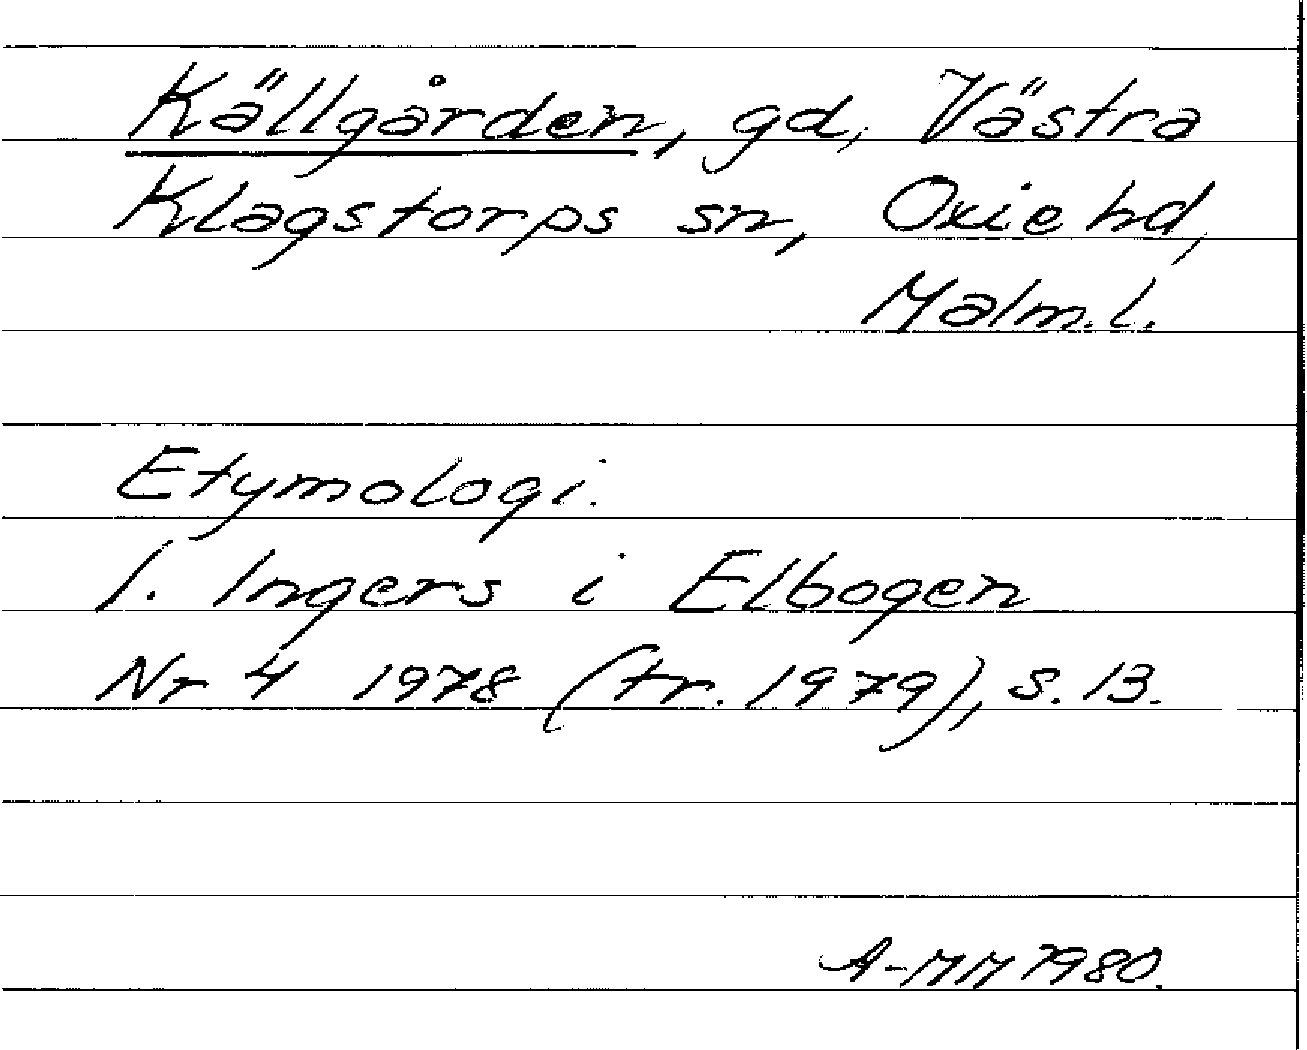 Källgården, gd, Västra
Klagstorps sn, Oxie hd,
Malm.l.
Etymologi.
I. Ingers i Elbogen
Nr 4 1978 (tr. 1979), s. 13.
A-MM 1980.